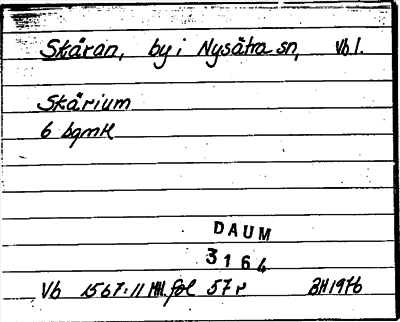 Skäran, by i Nysätra sn, Vb l.
Skärium
6 bgmtl
DAUM
3164
Vb 1567:11 Mtl. fol 57 r BH 1976